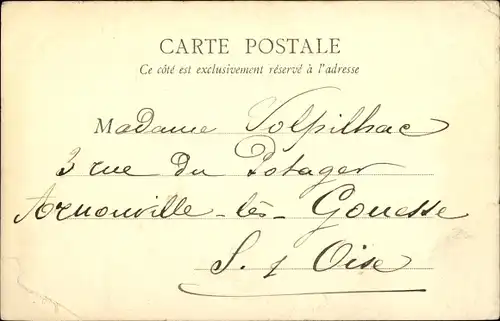 CARTE POSTALE
Ce côté est exclusivement réservé à l'adresse
Madame Volpilhac
3 rue du Potager
Arnouville-lès-Gonesse
S. & Oise